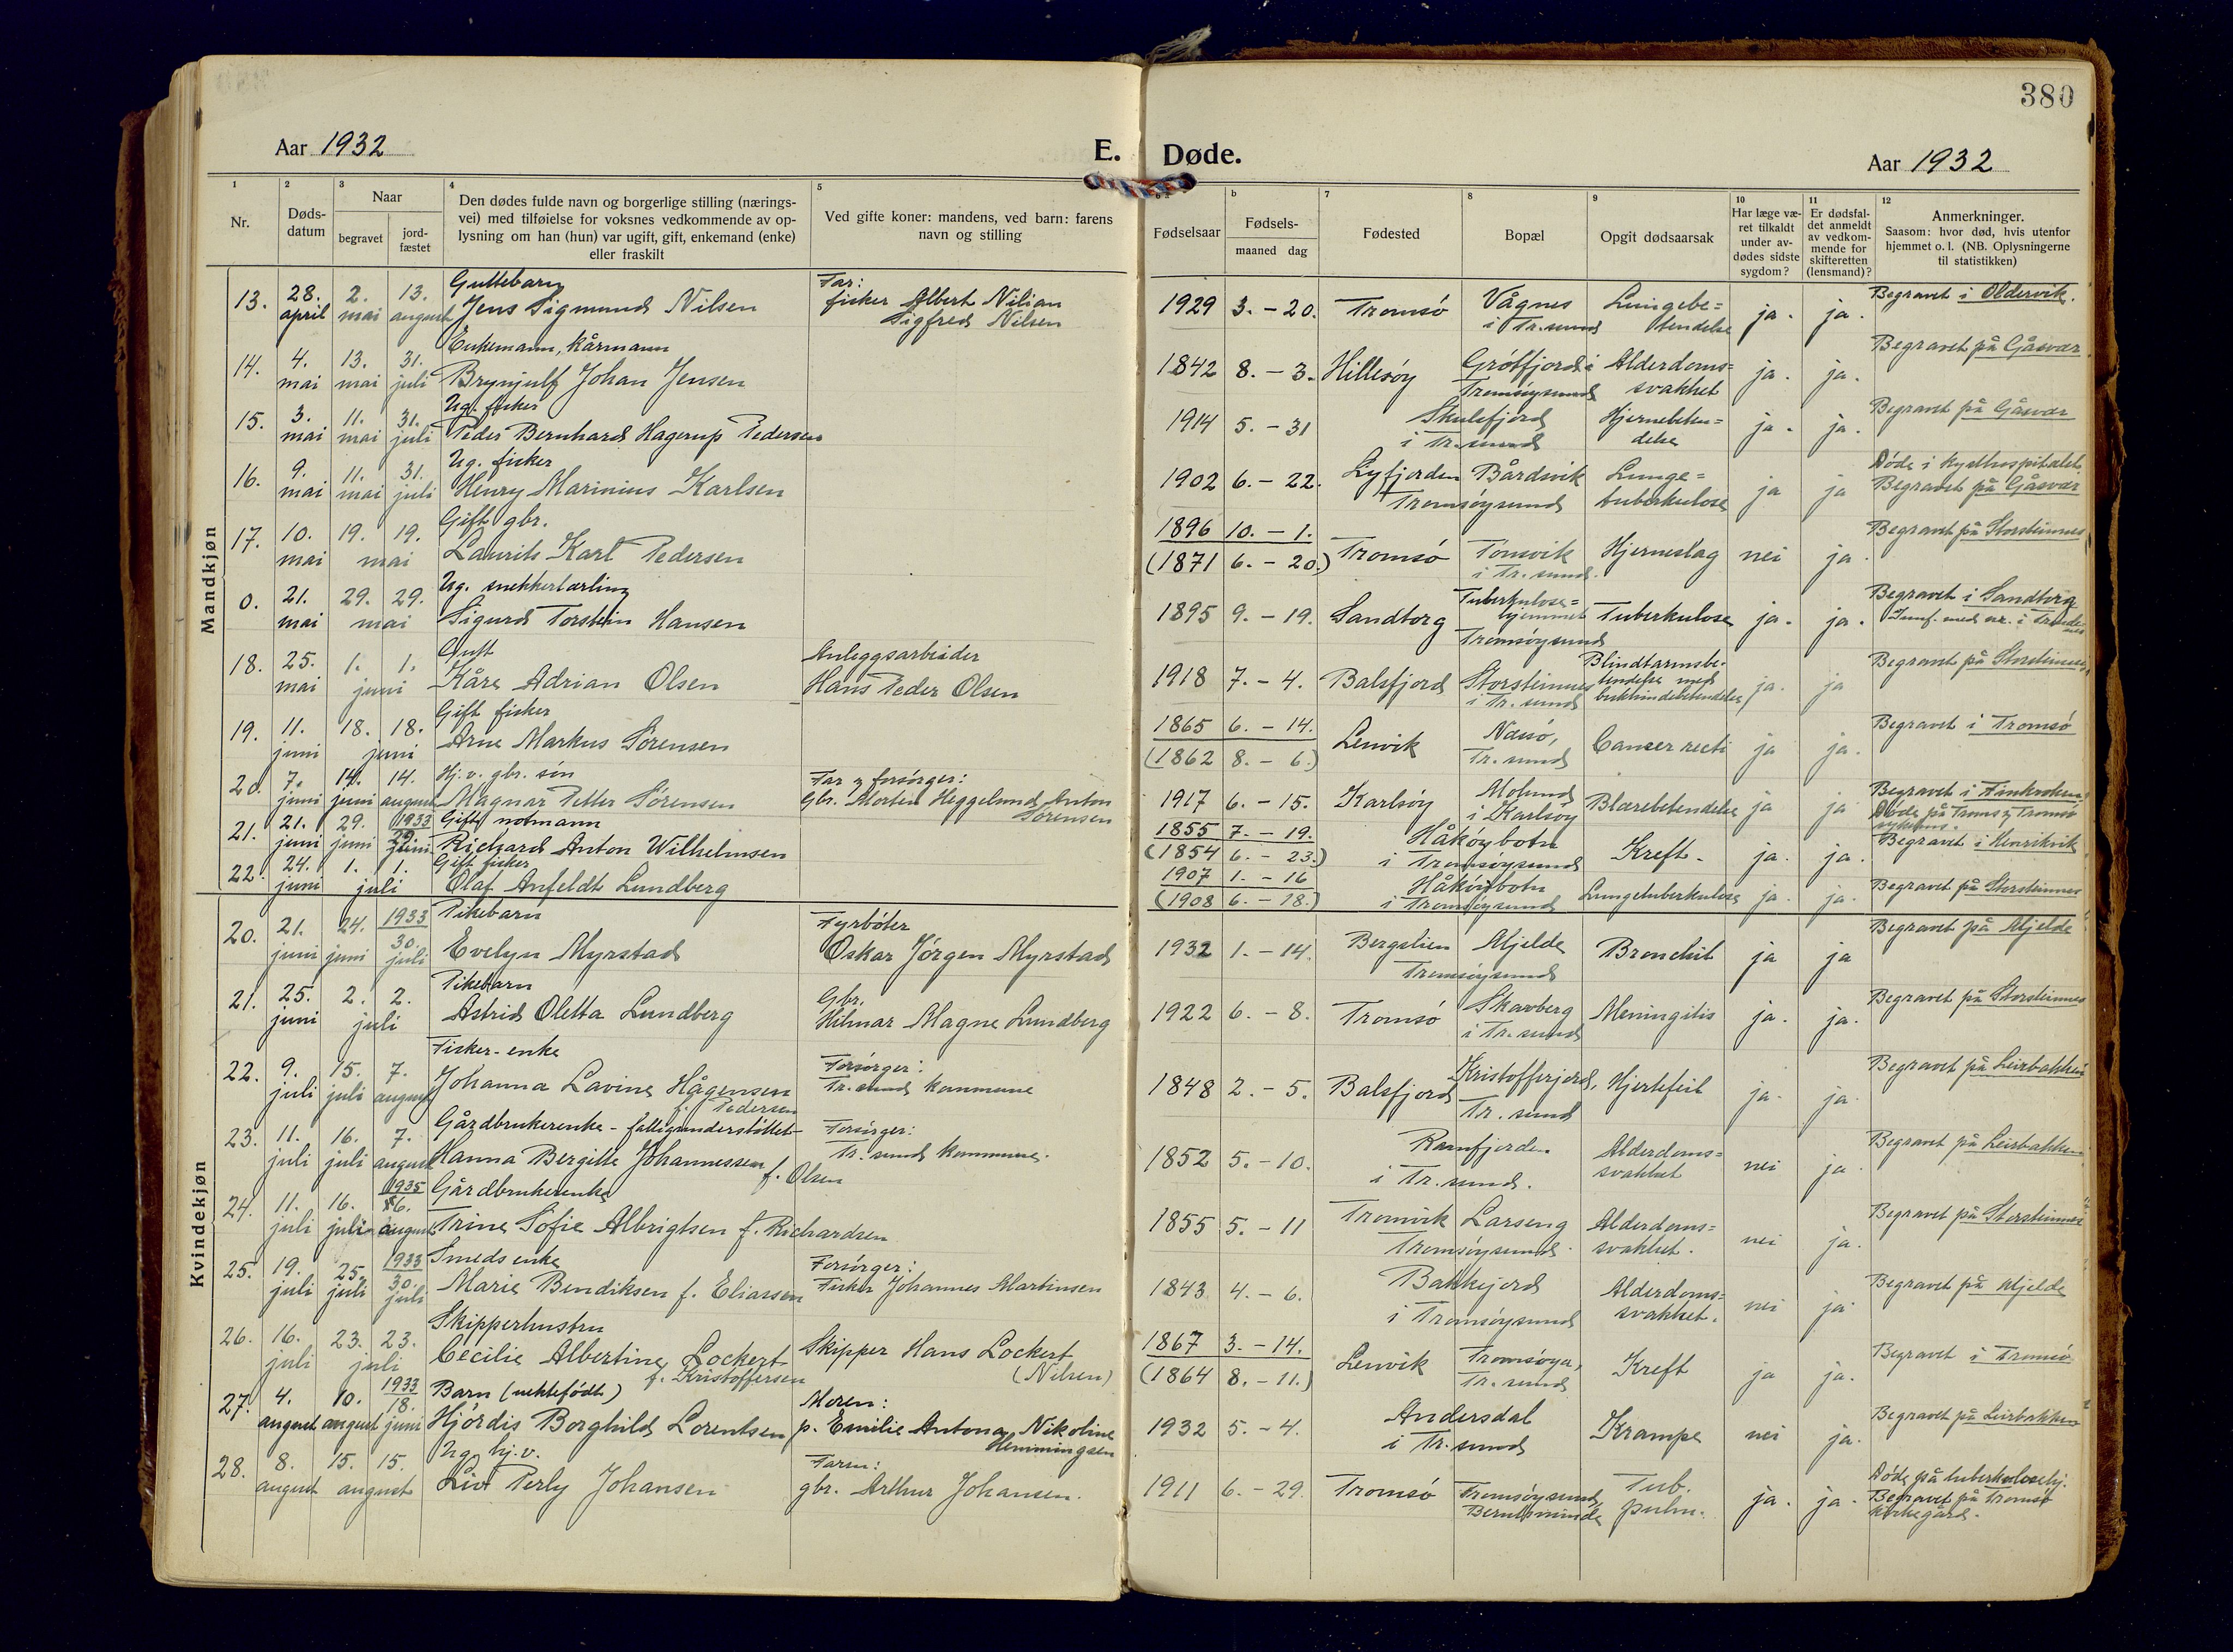 380
Aar 1932
E. Døde.
Aar 1932
1 2 3 4 5
Nr.
Døds-
datum
Naar
begravet
jord-
fæstet
Den dødes fulde navn og borgerlige stilling (nærings-
vei) med tilføielse for voksnes vedkommende av op-
lysning om han (hun) var ugift, gift, enkemand (enke)
eller fraskilt
Ved gifte koner: mandens, ved barn: farens
navn og stilling
Fødselsaar
b
Fødsels-
maaned dag
7
Fødested
8
Bopæl
9
Opgit dødsaarsak
10
Har læge væ-
ret tilkaldt
under av-
dødes sidste
sygdom?
11
Er dødsfal-
det anmeldt
av vedkom-
mende for
skifteretten
(lensmand)?
12
Anmerkninger.
Saasom: hvor død, hvis utenfor
hjemmet o. l. (NB. Oplysningerne
til statistikken)
Mandkjøn
13. 28. april 2. mai 13. august
Guttebarn
Jens Sigmund Nilsen
Far:
fisker Albert Nilian
Sigfred Nilsen
1929 3. - 20. Tromsø
Vågnes
i Tr.sund
Lungebe=
tendelse
ja. ja.
Begravet i Oldervik.
14. 4. mai 13. mai 31. juli
Enkemann, kårmann
Brynjulf Johan Jensen
1842 8. - 3. Hillesøy
Grøtfjord i
Tromsøysund
Alderdoms=
svakhet
ja. ja.
Begravet på Gåsvær
15. 3. mai 11. mai 31. juli
Ug. fisker
Peder Bernhard Hagerup Pedersen
1914 5. - 31
Skulsfjord
i Tr.sund
Hjernebeten=
delse
ja. ja.
Begravet på Gåsvær
16. 9. mai 11. mai 31. juli
Ug. fisker
Henry Marinius Karlsen
1902 6. - 22. Lyfjorden Bårdsvik
Tromsøysund
Lunge=
tuberkulose
ja ja
Døde i
Begravet på Gåsvær
17. 10. mai 19. 19. mai
Gift gbr.
Laurits Karl Pedersen
1896 10. - 1.
(1871 6. - 20.) Tromsø
Tønsvik
i Tr. sund.
Hjerneslag nei ja.
Begravet på Storsteinnes
0. 21. mai 29. 29. mai
Ug. snekkerlærling
Sigurd Torstein Hansen
1895 9. - 19. Sandtorg
Tuberkulose=
hjemmet
Tromsøysund
Tuberkulose ja. ja.
Begravet i Sandtorg
18. 25. mai 1. 1. juni
Gutt
Kåre Adrian Olsen
Anleggsarbeider
Hans Peder Olsen
1918 7. - 4. Balsfjord
Storsteinnes
i Tr. sund
Blindtarmsbe-
tendelse med
bukhindebetendelse
ja. ja
Begravet på Storsteinnes
19. 11. juni 18. 18. juni
Gift fisker
Arne Markus Sørensen
1865 6. - 14.
(1862 8. - 6.) Lenvik
Tr. sund
Canser recti ja ja.
Begravet i Tromsø
20. 7. juni 14. juni 14. august
Hj. v. gbr. søn
Magnar Petter Sørensen
Far og forsørger:
Gbr. Morten Heggelund Anton
Sørensen
1917 6. - 15. Karlsøy
i Karlsøy
Blærebetendelse ja ja
Begravet i Finkroken
21. 21. juni 29. juni 1933 juni
Gift notmann
Richard Anton Wilhelmsen
1855 7. - 19.
(1854 6. - 23.)
Håkøybotn
i Tromsøysund
Kreft. ja. ja.
Begravet i Henrikvik
22. 24. juni 1. 1. juli
Gift fisker
Olaf Anfeldt Lundberg
1907 1. - 16
(1908 6. - 18.)
Håkøybotn
i Tromsøysund
Lungetuberkulose ja. ja.
Begravet på Storsteinnes
Kvindekjøn
20. 21. juni 24. juni 1933 30. juli
Pikebarn
Evelyn Myrstad
Fyrbøter
Oskar Jørgen Myrstad
1932 1. - 14.
Bergslien Mjelde
Tromsøysund
Bronchit ja ja
Begravet på Mjelde
21. 25. juni 2. 2. juli
Pikebarn
Astrid Oletta Lundberg
Gbr.
Hilmar Magne Lundberg
1922 6. - 8. Tromsø
Skavberg
i Tr. sund
Meningitis ja. ja.
Begravet på Storsteinnes
22. 9. juli 15. juli 7. august
Fisker-enke
Johanna Lavine Hågensen
f. Pedersen
Forsørger:
Tr.sund kommune
1848 2. - 5. Balsfjord
Kristofferjord,
Tr. sund
Hjertefeil ja. ja.
Begravet på Leirbakken
23. 11. juli 16. juli 7. august
Gårdbrukerenke - fattigunderstøttet
Hanna Bergitte Johannessen
f. Olsen
Forsørger:
Tr. sund kommune.
1852 5. - 10.
Ramfjorden
i Tr. sund.
Alderdoms=
svakhet
nei ja.
Begravet på Leirbakken
24. 11. juli 16. juli 1935 august
Gårdbrukerenke
Trine Sofie Albrigtsen f. Richardsen
1855 5. - 11
Tromvik Larseng
Tromsøysund.
Alderdoms=
svakhet.
nei ja.
Begravet på Storsteinnes
25. 19. juli 25. juli 1933 30. juli
Smeds enke
Marie Bendiksen f. Eliassen
Forsørger:
Fisker Johannes Martinsen
1843 4. - 6.
Bakkejord
i Tromsøysund
Alderdoms=
svakhet.
nei ja.
Begravet på Mjelde
26. 16. juli 23. 23. juli
Skipperhustru
Cecilie Albertine Lockert
f. Kristoffersen
Skipper Hans Lockert
(Nilsen)
1867 3. - 14.
(1864 8. - 11.) Lenvik
Tromsøya,
Tr. sund
Kreft ja ja.
Begravet i Tromsø
27. 4. august 10. august 1933 18. juni
Barn (uektefødt)
Hjørdis Borghild Lorentsen
Moren:
p. Emilie Antona Nikoline
Hemmingsen
1932 5. - 4.
Andersdal
i Tr. sund
Krampe nei ja.
Begravet på Leirbakken
28. 8. august 15. 15. august
Ug. hj. v.
Liv Perly Johansen
Faren:
gbr. Arthur Johansen.
1911 6. - 29. Tromsø
Tromsøysund,
Tub.
pulm.
ja. ja.
Døde på tuberkulosehj.
Begravet på Tromsø
kirkegård.